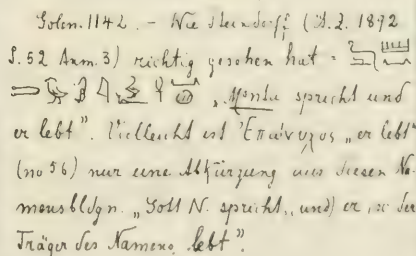 Golen. 1142. – Wie Steindorff (Ä. Z. 1892
S. 52 Anm. 3) richtig gesehen hat =
„Montu spricht und
er lebt". Vielleicht ist Ἐπώνυχος „er lebt"
(no 56) nur eine Abkürzung aus diesen Na-
mensbldgn. „Gott N. spricht, und er, der
Träger des Namens, lebt".